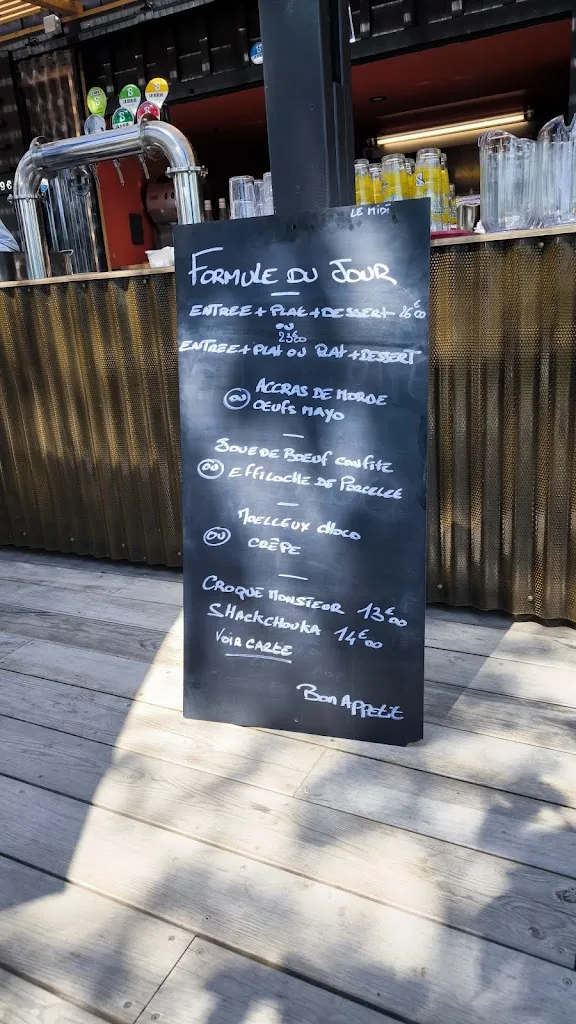 LE MIDI
FORMULE DU JOUR
ENTREE + PLAT + DESSERT 26€00
OU
23€00
ENTREE + PLAT OU PLAT + DESSERT
ACCRAS DE MORUE
OU
OEUFS MAYO
JOUE DE BOEUF CONFITE
OU EFFILOCHE DE PORCELET
MOELLEUX CHOCO
OU
CRÊPE
CROQUE MONSIEUR 13€00
SHACKCHOUKA 14€00
VOIR CARTE
BON APPETIT